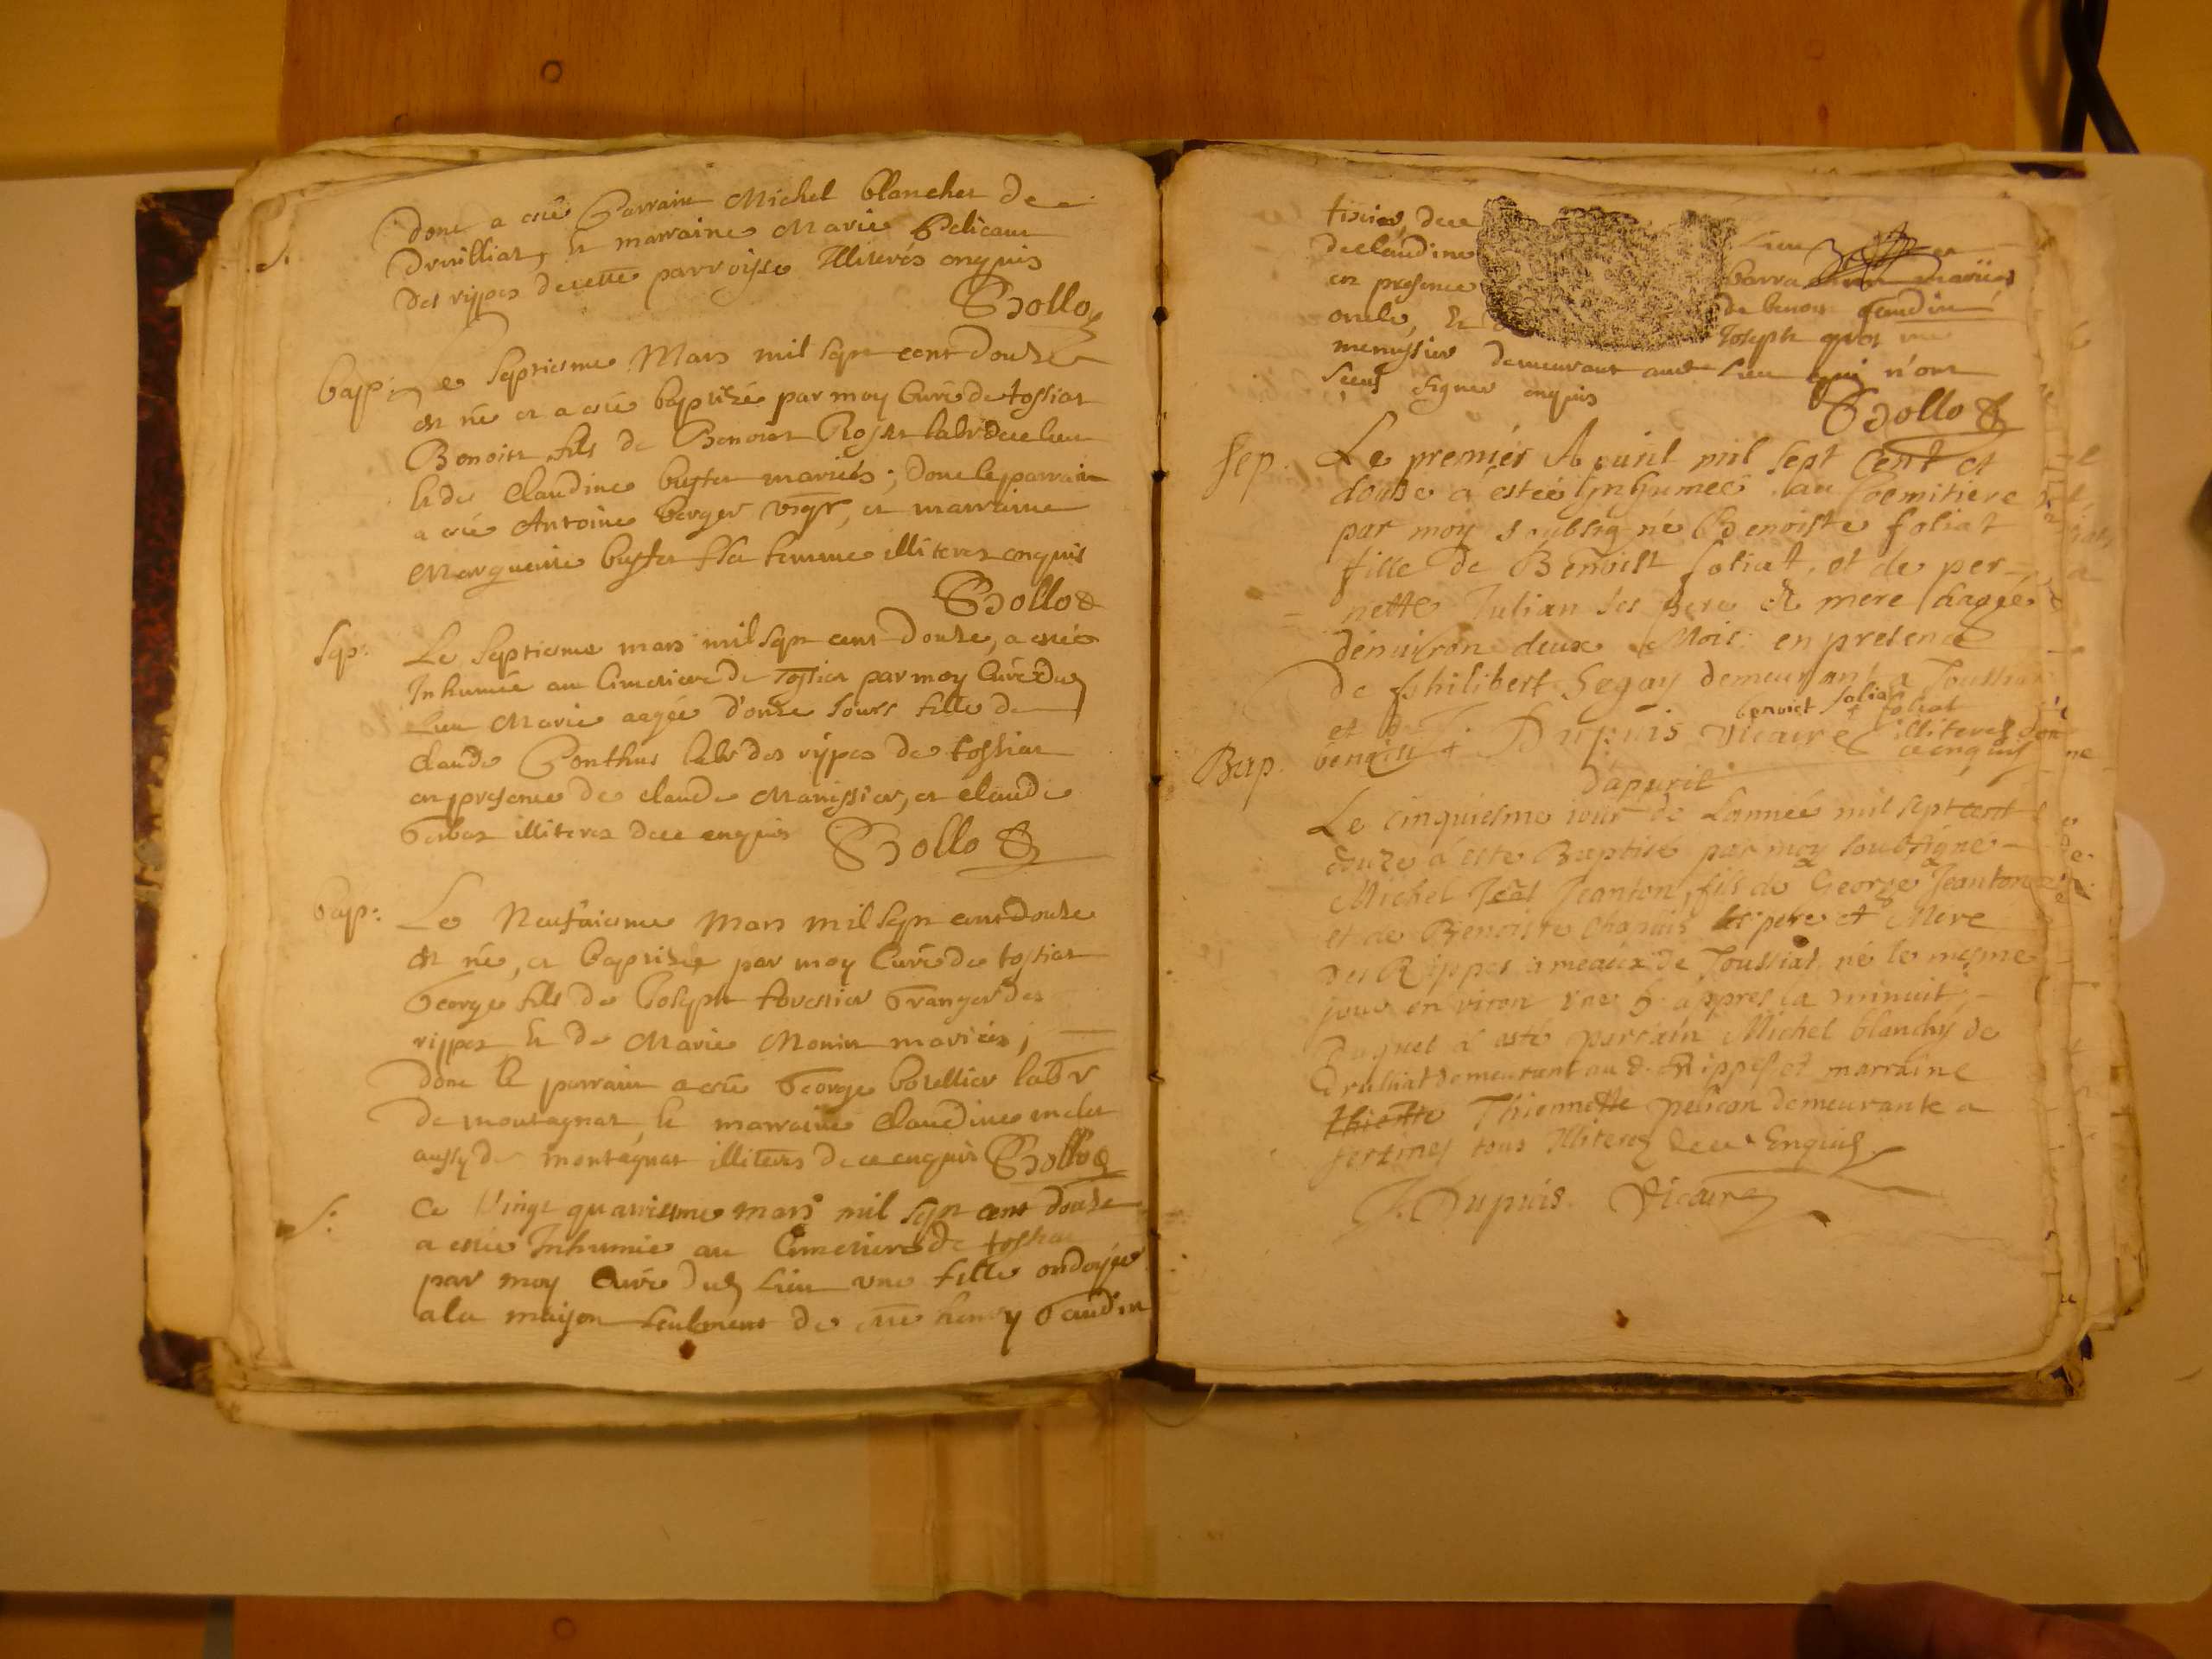 dont a esté Parrain Michel blanchet de
Druilliat, & marraine Marie Pelican
des rippes de cette parroisse Illiteres enquis
Bollo
bap: Le septiesme Mars mil sept cent douze
est né et a esté baptisé par moy Curé de tossiat
Benoist fils de Benoist labr dud lieu
& de Claudine mariés; dont le parrain
a esté Antoine berger vigr, et marraine
Marguerite sa femme illiteres enquis
Bollo
Sep: Le septiesme mars mil sept cent douze, a esté
Inhumée au Cimetiere de Tossiat par moy Curé dud
Lieu Marie aagée d'onze Jours fille de
claude Ponthus labr des rippes de tossiat
en presence de claude Manissier, et claude
illiteres de ce enquis Bollo
bap: Le Neufviesme Mars mil sept cent douze
est né, et baptisé par moy Curé de tossiat
George fils de Joseph Granger des
rippes & de Marie Monin mariés;
dont le parrain a esté George labr
de montagnat & marraine Claudine
aussy de montagnat illiteres de ce enquis Bollo
S: Ce Vingt quatriesme mars mil sept cent douze
a estée Inhumée au Cimetiere de tossiat
par moy Curé dud Lieu une fille ondoyée
a la maison seulement de henry Gaudin
de claudine mariés
en presence de benoit Gaudin
oncle, & Joseph
menussier demeurant aud Lieu qui n'ont
sceus signer enquis
Bollo
Sep. Le premier Apuril mil sept Cent et
douse a estée Inhumeé au Coemitiere
par moy soubsigné Benoiste foliat
fille de Benoist foliat, et de per-
nette Julian ses pere et mere aagée
denviron deux Mois en presence
de philibert Segay demeurant a Toussiat
benoict foliat
et Dupuis Vicaire illiteres
enquis
Bap.
dapuril
Le cinquiesme iour de Lanneé mil sept cent
douze a esté Baptisé par moy soubsigné
Michel Jeanton, fils de George Jeanton
et de Benoiste Chapuis ses pere et Mere
des Rippes ameaux de Toussiat né le mesme
jour environ une h appres la minuit
Duquel a esté parrain Michel blanchy de
Druliat demeurant au d. Rippes et marraine
Thiennette pelican demeurante a
sertines tous Illiteres de ce Enquis
J. Dupuis Vicaire